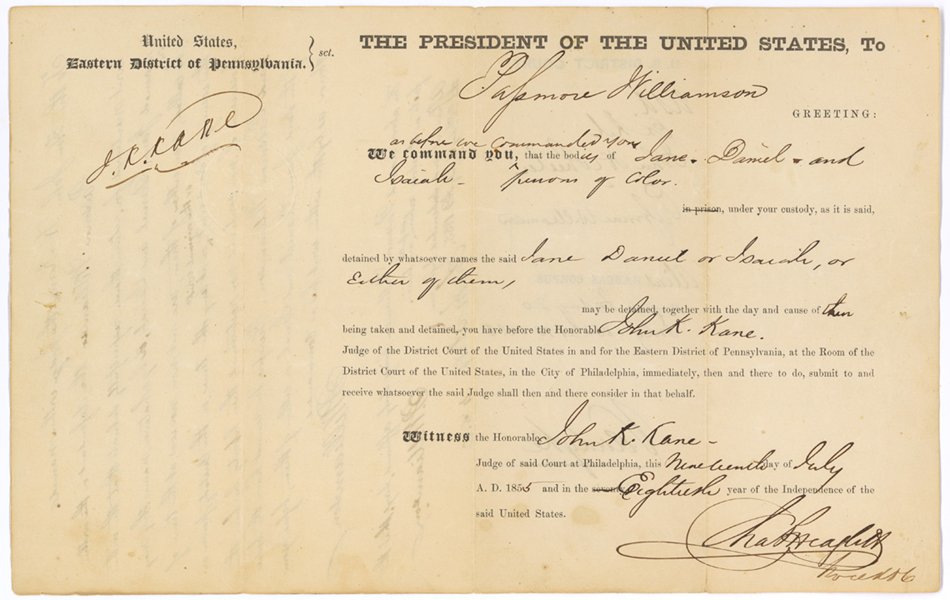 United States,
Eastern District of Pennsylvania. } sct.
J.K. KANE
THE PRESIDENT OF THE UNITED STATES, To
Passmore Williamson
GREETING:
as before we commanded you
We command you, that the bodies of Jane, Daniel and
Isaiah persons of color.
in prison, under your custody, as it is said,
detained by whatsoever names the said Jane Daniel or Isaiah, or
Either of them,
may be detained, together with the day and cause of their
being taken and detained, you have before the Honorable John K. Kane.
Judge of the District Court of the United States in and for the Eastern District of Pennsylvania, at the Room of the
District Court of the United States, in the City of Philadelphia, immediately, then and there to do, submit to and
receive whatsoever the said Judge shall then and there consider in that behalf.
Witness the Honorable John K. Kane
Judge of said Court at Philadelphia, this Nineteenth day of July
A. D. 1855 and in the seventy Eightieth year of the Independence of the
said United States.